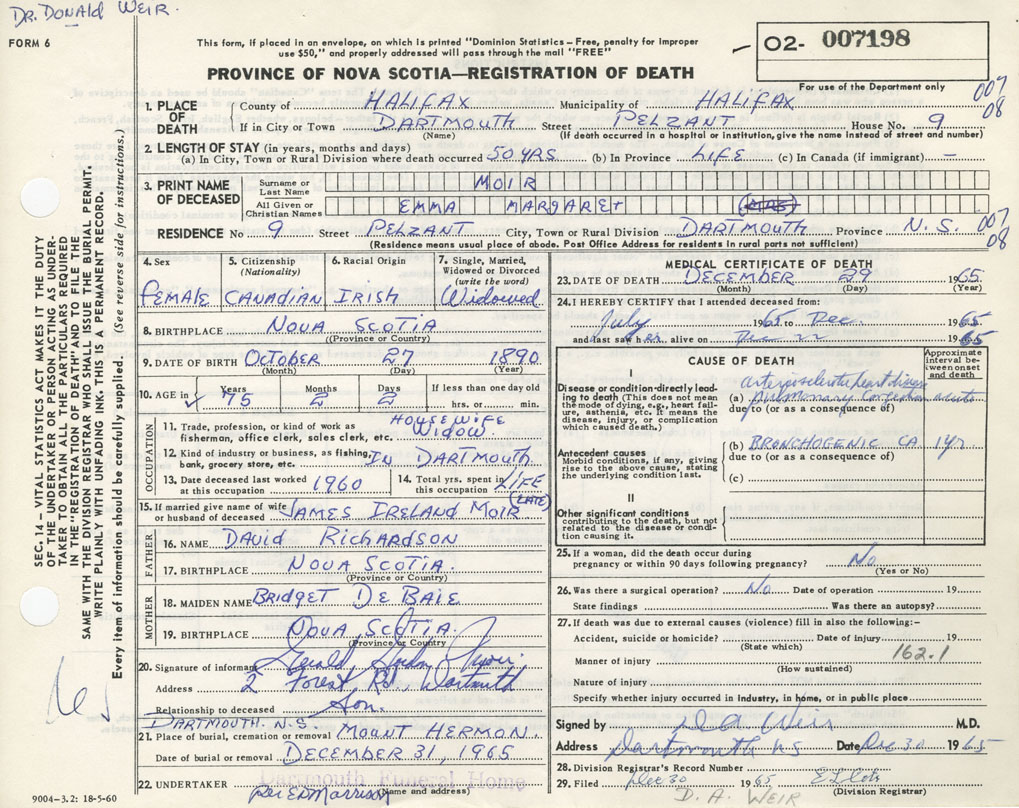 DR. DONALD WEIR.
FORM 6
This form, if placed in an envelope, on which is printed "Dominion Statistics – Free, penalty for improper
use $50," and properly addressed will pass through the mail "FREE"
02- 007198
For use of the Department only
PROVINCE OF NOVA SCOTIA—REGISTRATION OF DEATH
007
08
1. PLACE OF DEATH
County of HALIFAX Municipality of HALIFAX
If in City or Town DARTMOUTH Street PELZANT House No. 9
(Name) (If death occurred in a hospital or institution, give the name instead of street and number)
2. LENGTH OF STAY (in years, months and days)
(a) In City, Town or Rural Division where death occurred 50 YRS (b) In Province LIFE (c) In Canada (if immigrant) —
3. PRINT NAME OF DECEASED
Surname or Last Name MOIR
All Given or Christian Names EMMA MARGARET (MRS)
RESIDENCE No 9 Street PELZANT City, Town or Rural Division DARTMOUTH Province N. S.
007
08
(Residence means usual place of abode. Post Office Address for residents in rural parts not sufficient)
4. Sex FEMALE
5. Citizenship (Nationality) CANADIAN
6. Racial Origin IRISH
7. Single, Married, Widowed or Divorced (write the word) Widowed
8. BIRTHPLACE NOVA SCOTIA
(Province or Country)
9. DATE OF BIRTH OCTOBER 27 1890
(Month) (Day) (Year)
10. AGE in Years 75 Months 2 Days 2 If less than one day old
hrs. or min.
OCCUPATION
11. Trade, profession, or kind of work as
fisherman, office clerk, sales clerk, etc. HOUSEWIFE
WIDOW.
12. Kind of industry or business, as fishing,
bank, grocery store, etc. IN DARTMOUTH
13. Date deceased last worked
at this occupation 1960
14. Total yrs. spent in
this occupation LIFE
(LATE)
15. If married give name of wife
or husband of deceased JAMES IRELAND MOIR
FATHER
16. NAME DAVID RICHARDSON
17. BIRTHPLACE NOVA SCOTIA.
(Province or Country)
MOTHER
18. MAIDEN NAME BRIDGET DE BAIE
19. BIRTHPLACE NOVA SCOTIA.
(Province or Country)
20. Signature of informant Gerald
Address 2 Forest Rd., Dartmouth
Relationship to deceased Son.
DARTMOUTH. N.S.
21. Place of burial, cremation or removal MOUNT HERMON.
Date of burial or removal DECEMBER 31, 1965
22. UNDERTAKER Dartmouth Funeral Home
(Name and address)
per Ed Morrison
9004-3.2: 18-5-60
MEDICAL CERTIFICATE OF DEATH
23. DATE OF DEATH DECEMBER 29 1965
(Month) (Day) (Year)
24. I HEREBY CERTIFY that I attended deceased from:
July 1965 to Dec. 1965
and last saw her alive on Dec 22 1965
CAUSE OF DEATH
Approximate interval between onset and death
I
Disease or condition directly leading to death (This does not mean the mode of dying, e.g., heart failure, asthenia, etc. It means the disease, injury, or complication which caused death.)
arteriosclerotic heart disease
(a) Pulmonary Congestion acute
due to (or as a consequence of)
Antecedent causes
Morbid conditions, if any, giving rise to the above cause, stating the underlying condition last.
(b) BRONCHOGENIC CA 1 yr
due to (or as a consequence of)
(c)
II
Other significant conditions
contributing to the death, but not related to the disease or condition causing it.
25. If a woman, did the death occur during
pregnancy or within 90 days following pregnancy? No
(Yes or No)
26. Was there a surgical operation? No. Date of operation 19
State findings Was there an autopsy?
27. If death was due to external causes (violence) fill in also the following:–
Accident, suicide or homicide? Date of injury 19
(State which)
162.1
Manner of injury
(How sustained)
Nature of injury
Specify whether injury occurred in industry, in home, or in public place
Signed by D A Weir M.D.
Address Dartmouth NS Date Dec 30 1965
28. Division Registrar's Record Number
29. Filed Dec 30 1965
(Division Registrar)
D. A. WEIR
SEC. 14 – VITAL STATISTICS ACT MAKES IT THE DUTY
OF THE UNDERTAKER OR PERSON ACTING AS UNDERTAKER
TO OBTAIN ALL THE PARTICULARS REQUIRED
IN THE "REGISTRATION OF DEATH" AND TO FILE THE
SAME WITH THE DIVISION REGISTRAR WHO SHALL ISSUE THE BURIAL PERMIT.
WRITE PLAINLY WITH UNFADING INK. THIS IS A PERMANENT RECORD.
Every item of information should be carefully supplied. (See reverse side for instructions.)